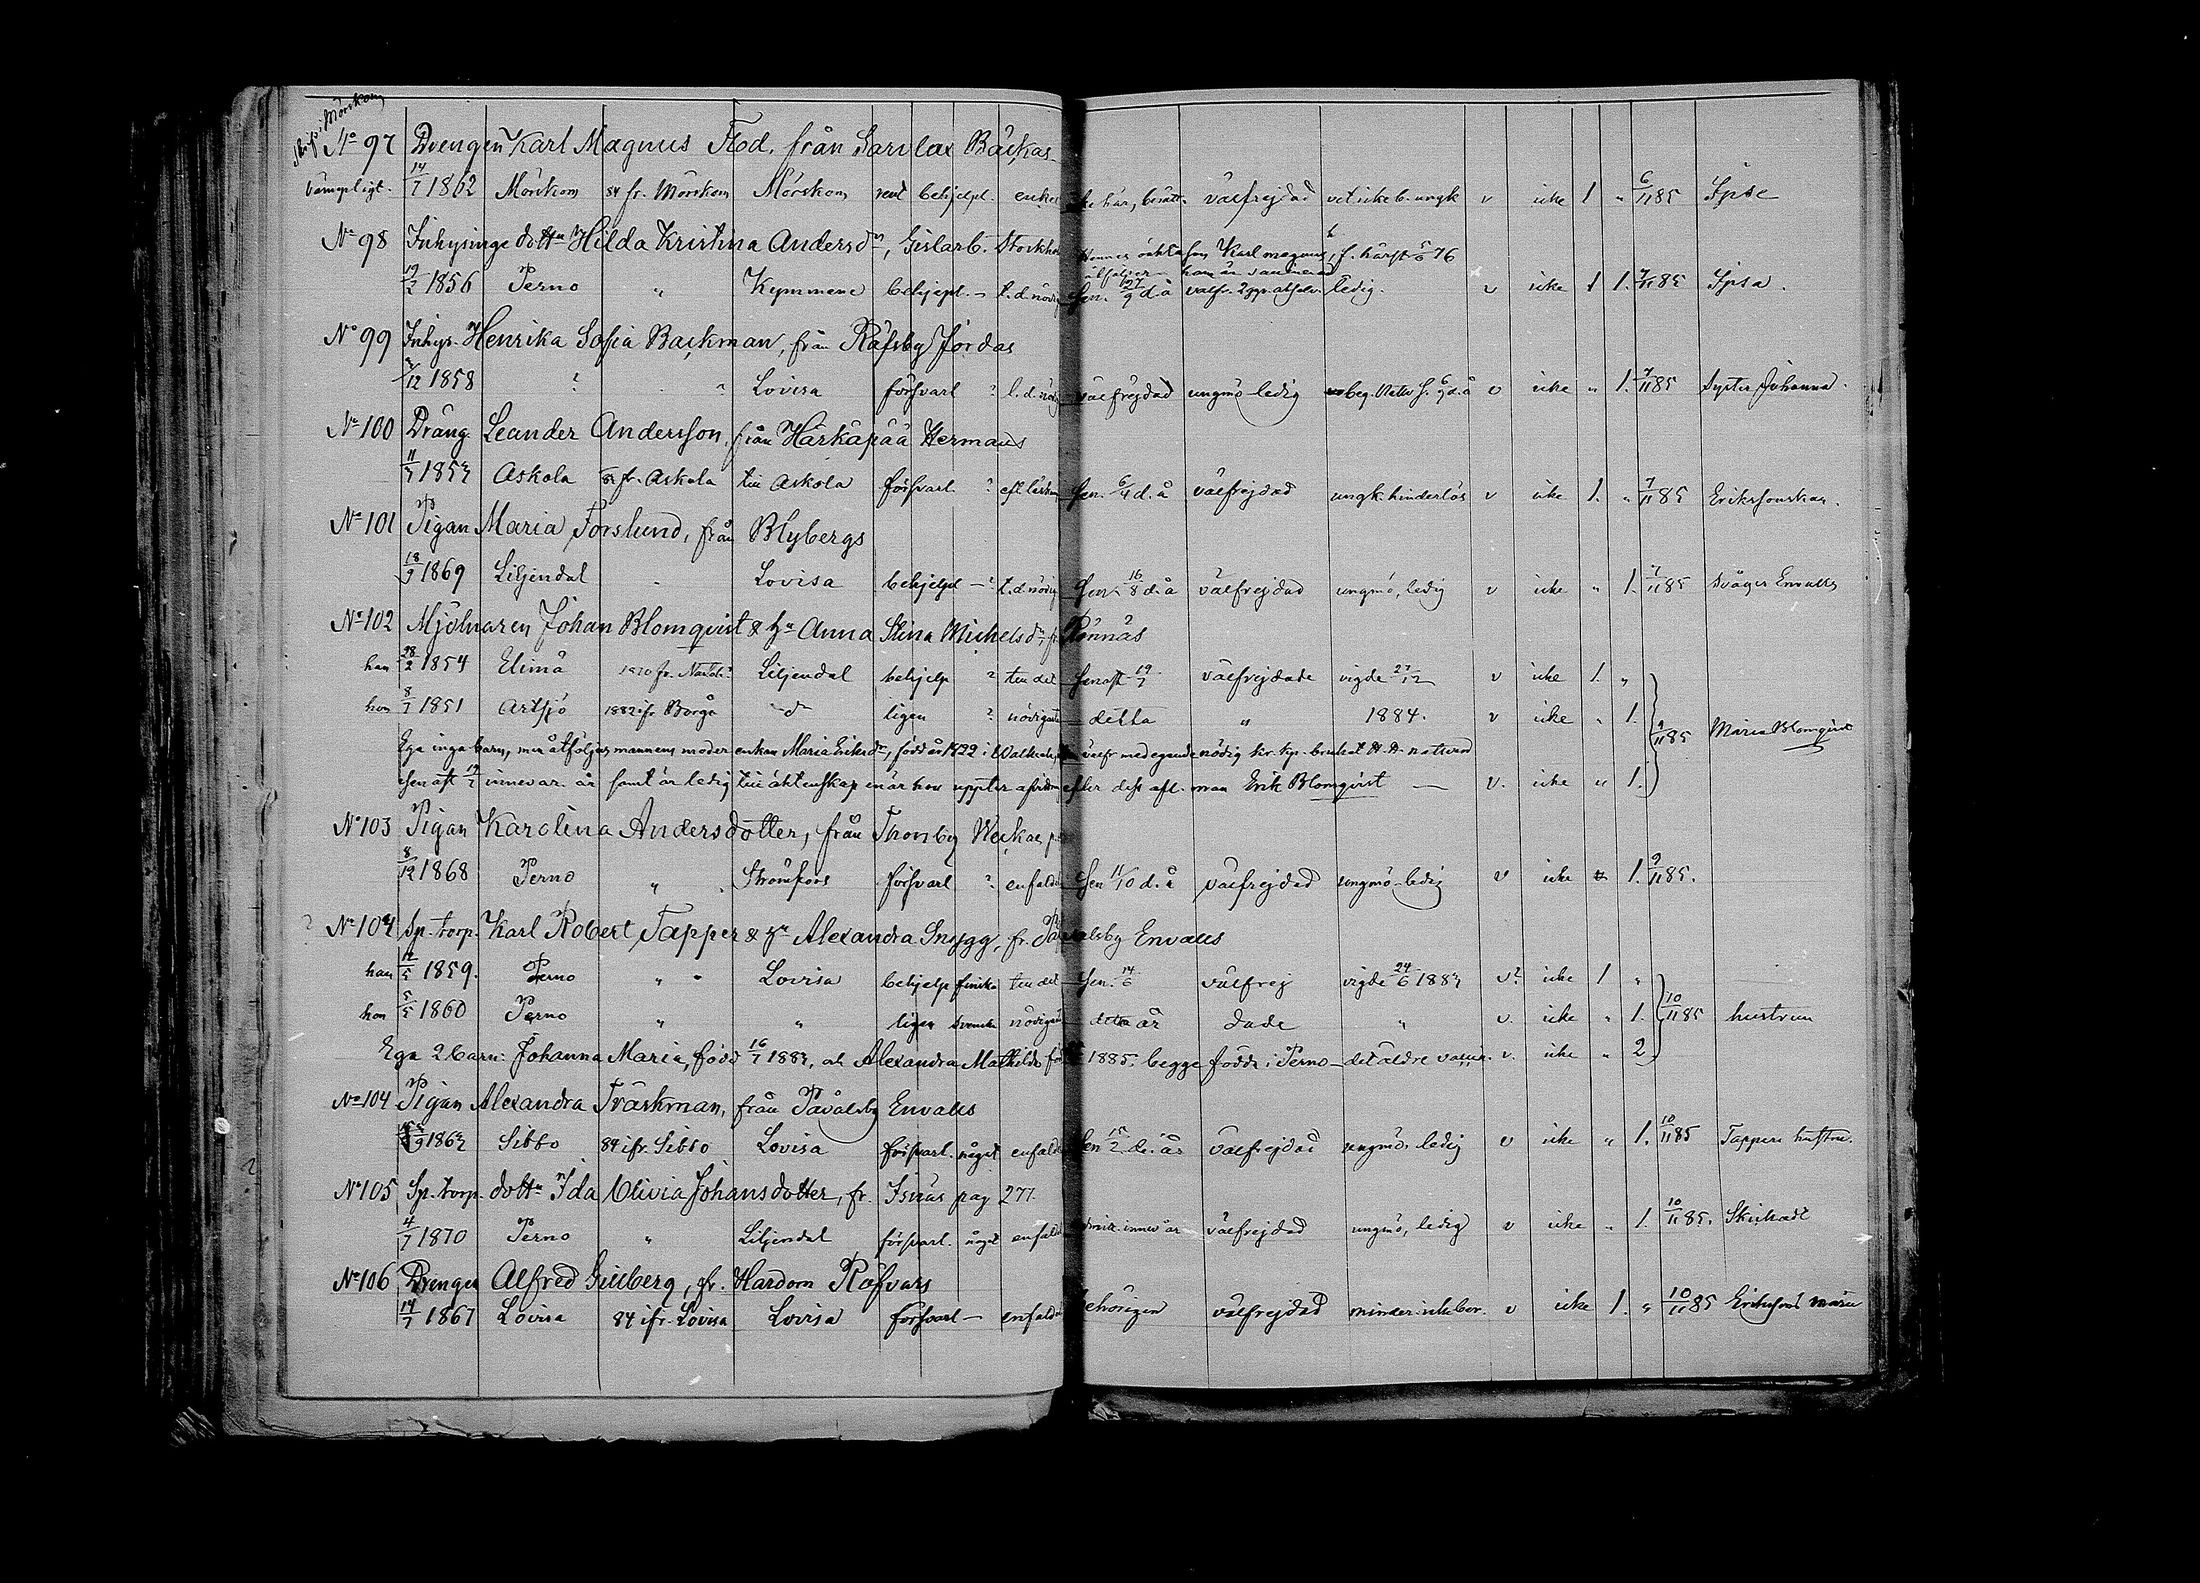 No 97 Drengen Karl Magnus Flod, från Sarvlax Backas
Värnpligt. 14/7 1862 Mörskom 84 fr. Mörskom Mörskom behjelpl. välfrejdad v icke 1 " 6/11 85 Ipse
No 98 Inhysinge dottn Hilda Kristina Andersdr, Gislarb. Karl Magnus, f. härst 76
19/2 1856 Perno " Kymmene behjepl. – t.d. nödig ledig. v icke 1 1. 7/11 85 Ipsa.
No 99 Inhys. Henrika Sofia Backman, från Räfsby Jordas
1858 ? Lovisa försvarl ? t.d. nödig välfrejdad ungmö ledig v icke " 1. 7/11 85 Syster Johanna.
No 100 Dräng. Leander Andersson från Härkäpää Hermans
Askola fr. Askola till Askola försvarl. ? sen. 6/4 d. å välfrejdad ungk. hinderlös v icke 1. " 7/11 85
No 101 Pigan Maria Forslund, från Blybergs
18/9 1869 Liljendal Lovisa behjelpl – ? t.d. nödig sen. 16/8 d. å välfrejdad ungmö, ledig v icke " 1. 7/11 85 Svåger Envalls
No 102 Mjölnaren Johan Blomqvist & hu Anna Stina Michelsdr, fr. Rönnäs
han 28/2 1854 Elimä Liljendal behjelp ? till det senast 19/7 välfrejdade vigde 27/12 v icke 1. "
hon 8/7 1851 Artsjö 1882 ifr Borgå d ligen ? nödigaste detta " 1884. v icke " 1. 9/11 85 Maria Blomqvist
Ega inga barn, men åtföljes mannens moder enkan Maria Eriksdr, född år 1822 i Walkeala, välfr med egande nödig kr. kp. nattvard
senast 19/7 innevar. år samt är ledig till äktenskap enär hon uppter efter dess afl. man Erik Blomqvist — v. icke " 1.
No 103 Pigan Karolina Andersdotter, från Thorsby Weckas
8/12 1868 Perno " Strömfors försvarl ? enfaldig sen 11/10 d. å välfrejdad ungmö – ledig v icke 1. 9/11 85.
No 104 Sp. torp. Karl Robert Tapper & hu Alexandra Snygg, fr. Påvalsby Envalls
han 1859. Perno " " Lovisa behjelp finska till det sen. 14/6 välfrej vigde 24/6 1883 v? icke 1 "
hon 5/5 1860 Perno " " ligen svenska nödigaste detta år dade " v. icke " 1. 10/11 85 hustrun
Ega 2 barn: Johanna Maria, född 16/7 1883, och Alexandra Mathilda 1885. begge födda i Perno – det äldre v. icke " 2
No 104 Pigan Alexandra Träskman, från Påvalsby Envalls
1863 Sibbo 84 ifr. Sibbo Lovisa försvarl. något enfaldig sen 15/2 de. år välfrejdad ungmö, ledig v icke " 1. 10/11 85 Tappers hustru.
No 105 Sp. torp. dottn Ida Olivia Johansdotter, fr. Isnäs pag 277.
4/7 1870 Perno " Liljendal försvarl. något innev år välfrejdad ungmö, ledig v icke " 1. 10/11 85.
No 106 Drengen Alfred Gillberg, fr. Hardom Räfvars
14/7 1867 Lovisa 84 ifr. Lovisa Lovisa försvarl – behörigen välfrejdad v icke 1. " 10/11 85